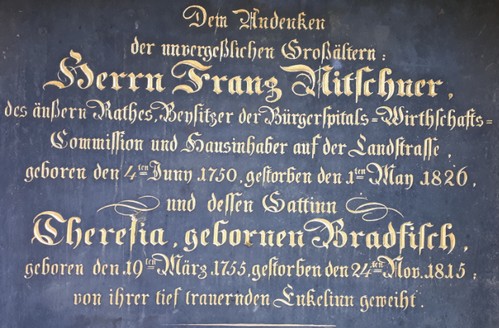 Dem Andenken
der unvergeßlichen Großältern:
Herrn Franz Nitschner,
des äußern Rathes, Beysitzer der Bürgerspitals=Wirthschafts=
Commission und Hausinhaber auf der Landstrasse,
geboren den 4ten Juny 1750, gestorben den 1ten May 1826,
und dessen Gattinn
Theresia, gebornen Bradfisch,
geboren den 19ten März 1755, gestorben den 24ten Nov. 1815;
von ihrer tief trauernden Enkelinn geweiht.